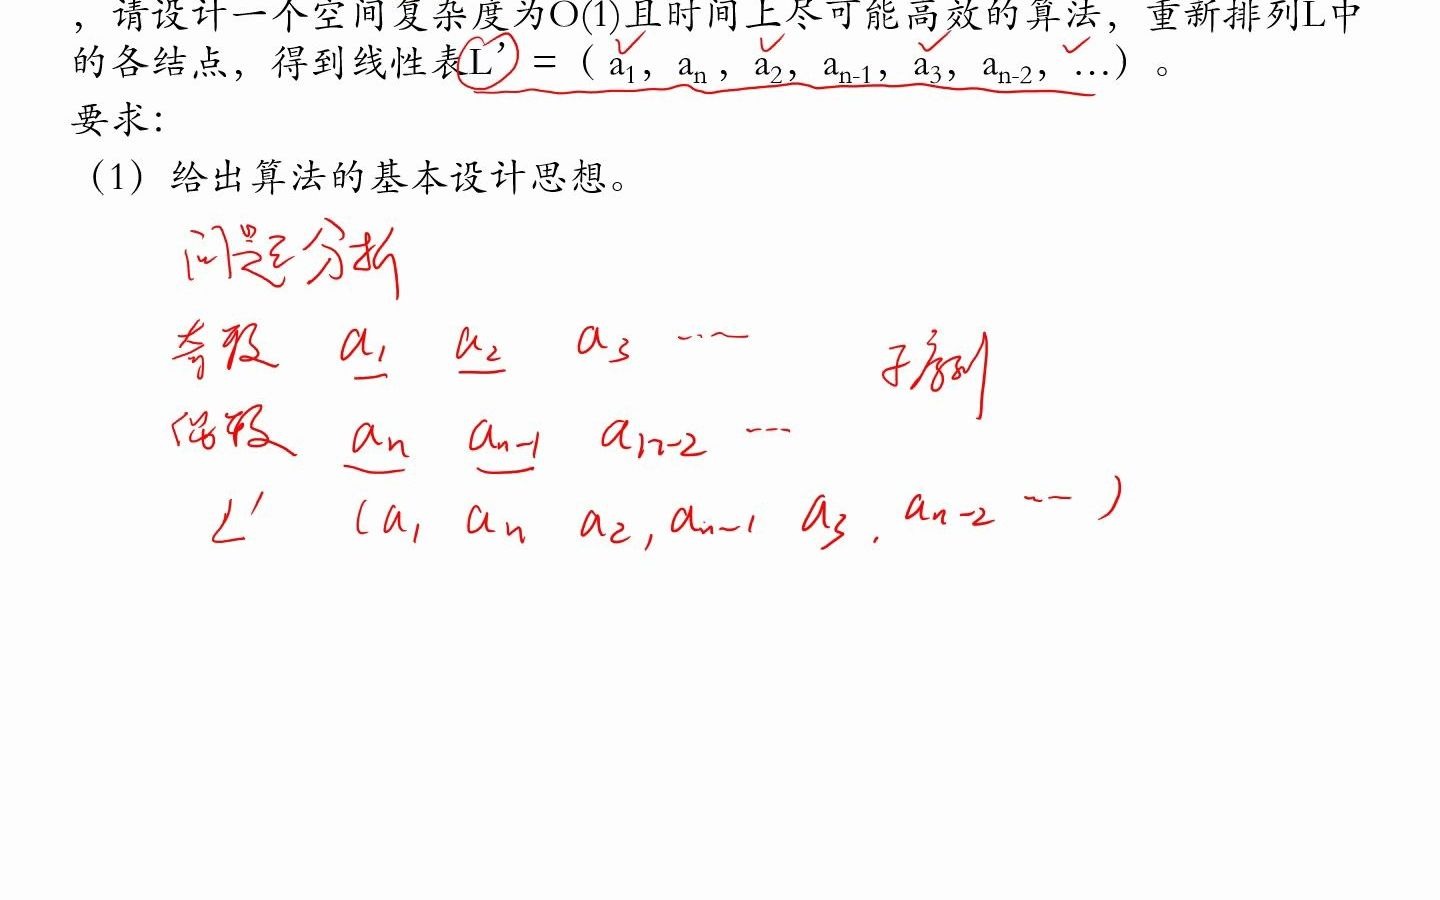 ，请设计一个空间复杂度为O(1)且时间上尽可能高效的算法，重新排列L中
的各结点，得到线性表L’ =（ a₁，aₙ，a₂，aₙ₋₁，a₃，aₙ₋₂，…）。
要求：
（1）给出算法的基本设计思想。
问题分析
奇数 a₁ a₂ a₃ ……
子序列
偶数 aₙ aₙ₋₁ aₙ₋₂ …
L' (a₁ aₙ a₂, aₙ₋₁ a₃, aₙ₋₂ …)